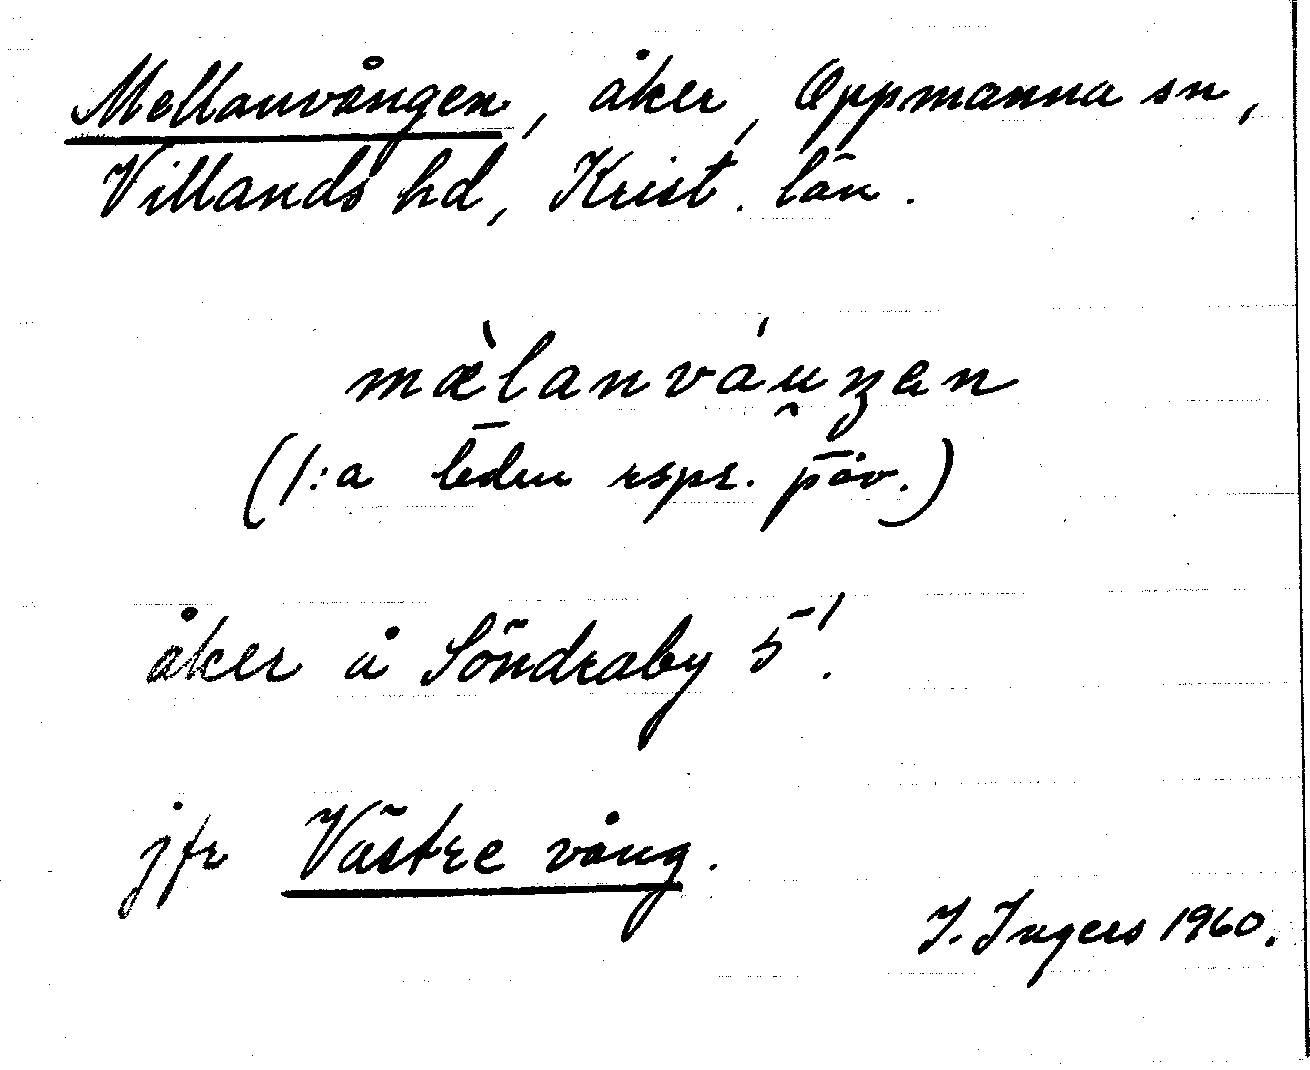 Mellanvången, åker, Oppmanna sn,
Villands hd, Krist. län.
mæ̀lanváu̯ŋen
(1:a leden rspr. påv.)
åker å Söndraby 5'.
jfr Västre vång.
I. Ingers 1960.